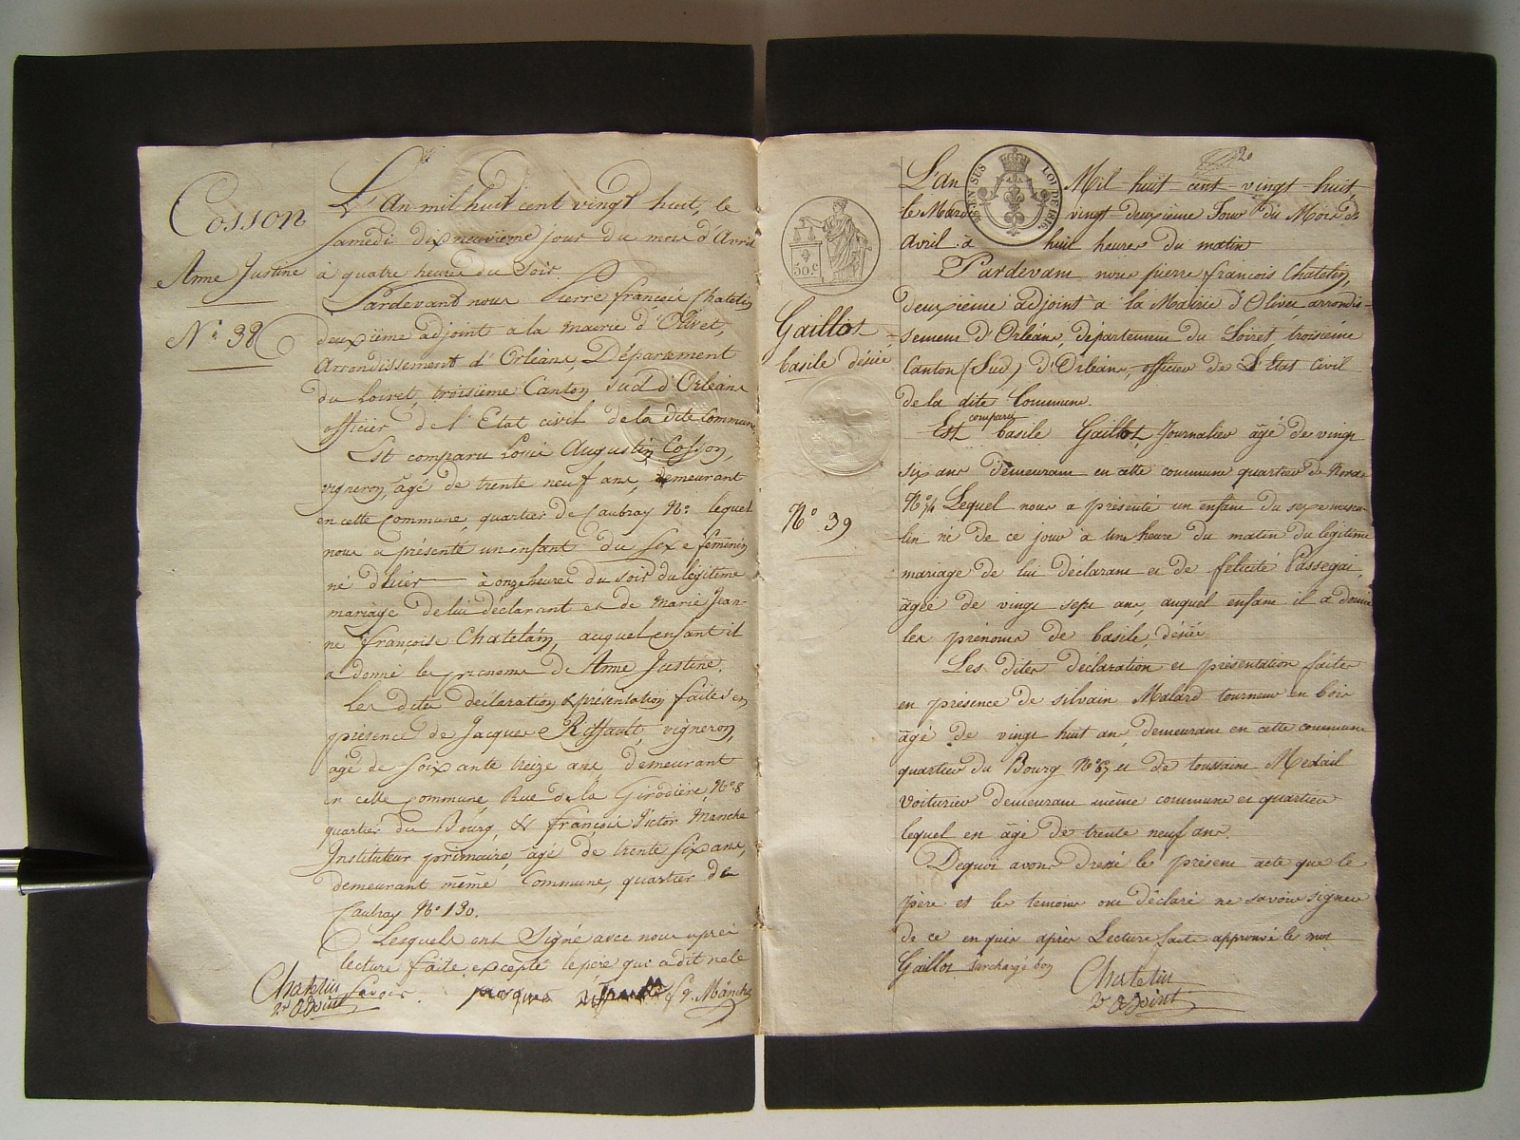 Cosson
Anne Justine
N° 38
L'An mil huit cent vingt huit, le
Samedi dix neuvième jour du mois d'Avril
à quatre heures du soir.
Pardevant nous Pierre françois Chatelin
deuxième adjoint a la mairie d'Olivet,
Arrondissement d'Orléans, Département
du Loiret, troisième Canton Sud d'Orléans
officier de l'Etat civil de la dite Commune,
Est comparu Louis Augustin Cosson,
vigneron, âgé de trente neuf ans, demeurant
en cette Commune, quartier de Caubray N° lequel
nous a présenté un enfant du sexe féminin
né d'hier à onze heures du soir du légitime
mariage de lui déclarant et de Marie Jean-
ne françoise Chatelain, auquel enfant il
a donné les prénoms de Anne Justine.
Les dites déclaration & présentation faites en
présence de Jacques Riffault, vigneron,
âgé de soixante treize ans demeurant
en cette commune, Rue de la Girodière, N° 8
quartier du Bourg, & françois Victor Manche
Instituteur primaire, âgé de trente six ans,
demeurant même Commune, quartier de
Caubray N° 130.
Lesquels ont Signé avec nous après
lecture faite, excepté le père qui a dit ne le
savoir.
Chatelin
2e adjoint
f. v. Manche
20
EN SUS LOI DE 1816
30 c
Gaillot
basile désiré
N° 39
L'an Mil huit cent vingt huit
le Mardi vingt deuxième Jour du Mois d'
Avril à huit heures du matin
Pardevant nous pierre françois Chatelin,
deuxième adjoint a la Mairie d'Olivet arrondis-
sement d'Orléans, département du Loiret troisième
Canton (Sud) d'Orléans, officier de L'Etat Civil
de la dite Commune.
Est comparu basile Gaillot Journalier âgé de vingt
six ans demeurant en cette commune quartier de
N° 74 Lequel nous a présenté un enfant du sexe mascu-
lin né de ce jour à une heure du matin du légitime
mariage de lui déclarant et de félicité Passegai
âgée de vingt sept ans, auquel enfant il a donné
les prénoms de basile désiré
Les dites déclaration et présentation faites
en présence de silvain Malard tourneur en bois
âgé de vingt huit ans demeurant en cette commune
quartier du Bourg N° 87 et de toussaint Medail
voiturier demeurant même commune et quartier
lequel en âgé de trente neuf ans.
Dequoi avons dressé le présent acte que le
père et les temoins ont déclaré ne savoir signer
de ce enquis après Lecture faite approuvé le mot
Gaillot surchargé bon
Chatelin
2e adjoint